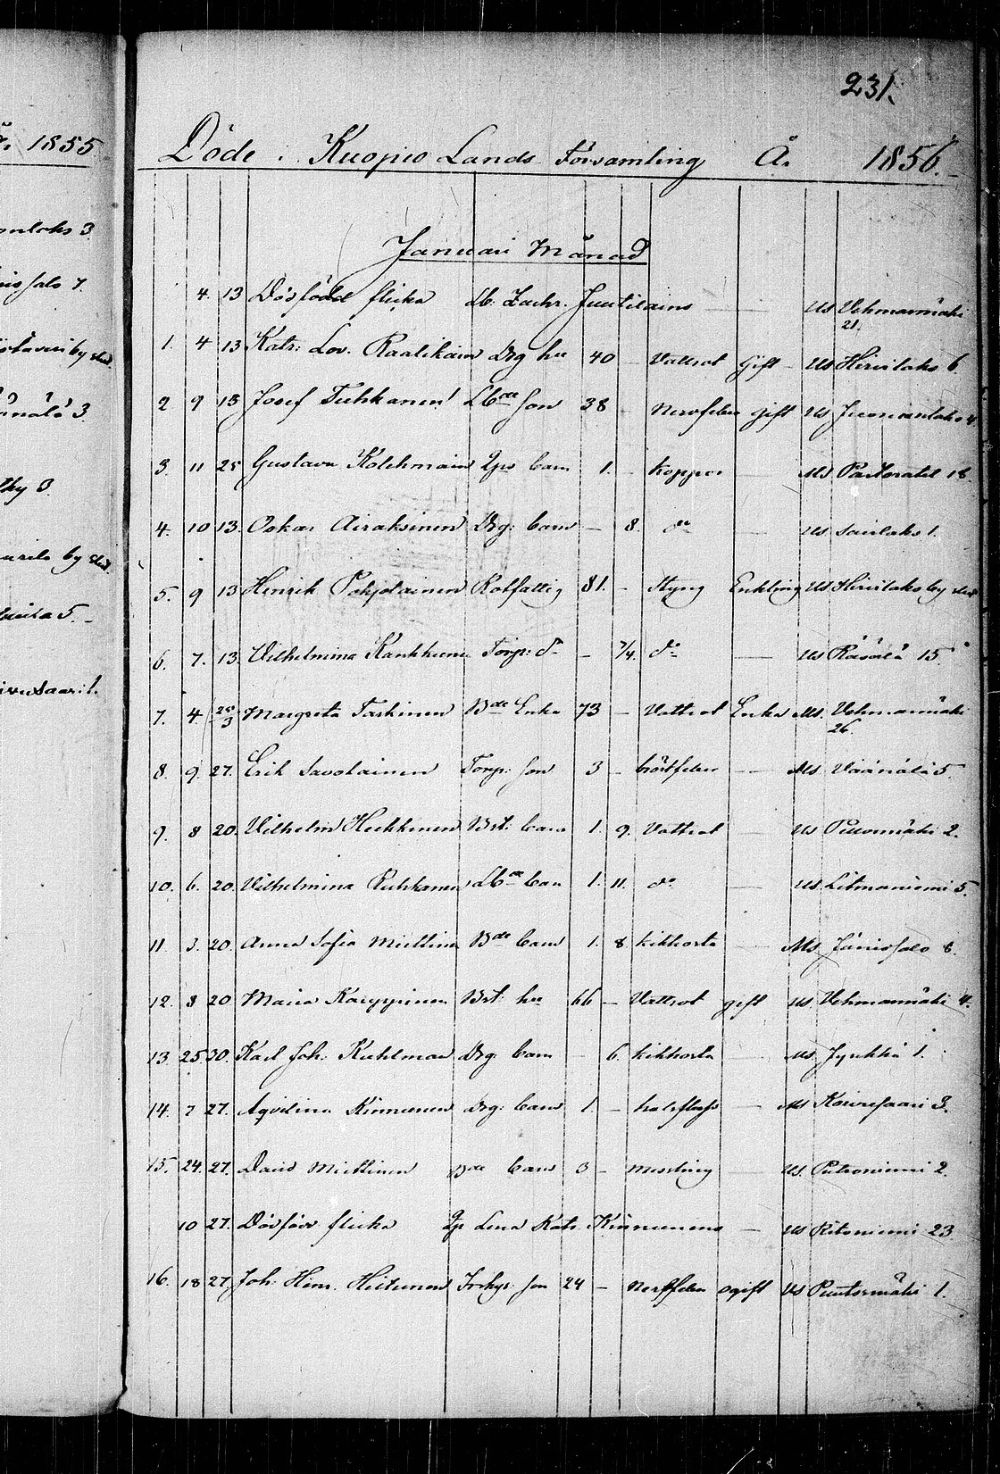 231.
Döde i Kuopio Lands Församling År 1856.
Januari Månad
4. 13 Dödfödd flicka Lb. Zachr. Juutilains Us Vehmasmäki 21.
1. 4 13 Katr: Lov. Raatikain Drg hu 40 - Vattsot Gift Us Hirvilaks 6.
2 9 13 Josef Tuhkanen Lbde Son 38 Nervfeber gift Us
3. 11 25 Gustava Kolehmain Lps barn 1. - koppor Ms Pastoratet 18.
4. 10 13. Oskar Airaksinen Drg: barn - 8. do Us Savilaks 1.
5. 9 13 Henrik Pohjolainen Rotfattig 81. - Styng Enkling Us Hirvilaks by
6. 7. 13. Vilhelmina Kankkunen Torp: dr - 3/4. do Us Räsälä 15
7. 4 20/3 Margreta Taskinen Bde Enka 73 - Vattsot Enka Ms. Vehmasmäki 26.
8. 9. 27. Erik Savolainen Torp: Son 3 - bröstfeber Ms. Väänälä 5.
9. 8 20. Vilhelm Heikkinen Brt: barn 1. 9. Vattsot Us Pellosmäki 2.
10. 6. 20. Vilhelmina Ruhkanen Lbde barn 1. 11. do Us. Litmaniemi 5.
11. 3. 20. Anna Sofia Miettinen Bde barn 1. 8. kikhosta Ms. Jänissalo 8.
12. 8 20 Maria Kauppinen Brt: hu 66 - Vattsot gift Us Vehmasmäki 4.
13. 25 30. Karl Joh. Kuhlman Drg. barn - 6. kikhosta Ms. Jynkkä 1.
14. 7 27. Aqvilina Kinnunen Drg: barn 1. - halsfluss Ms Koivusaari 3.
15. 24. 27. David Miettinen Bde barn 3 - messling Us. Putroniemi 2.
10 27. Dödfödd flicka Lena Katr. Kinnunens Us Ritoniemi 23
16. 18 27. Joh. Henr. Hietunen Inhys: son 24 - Nervfeber ogift Us Puutosmäki 1.
1855
3
3.
5.